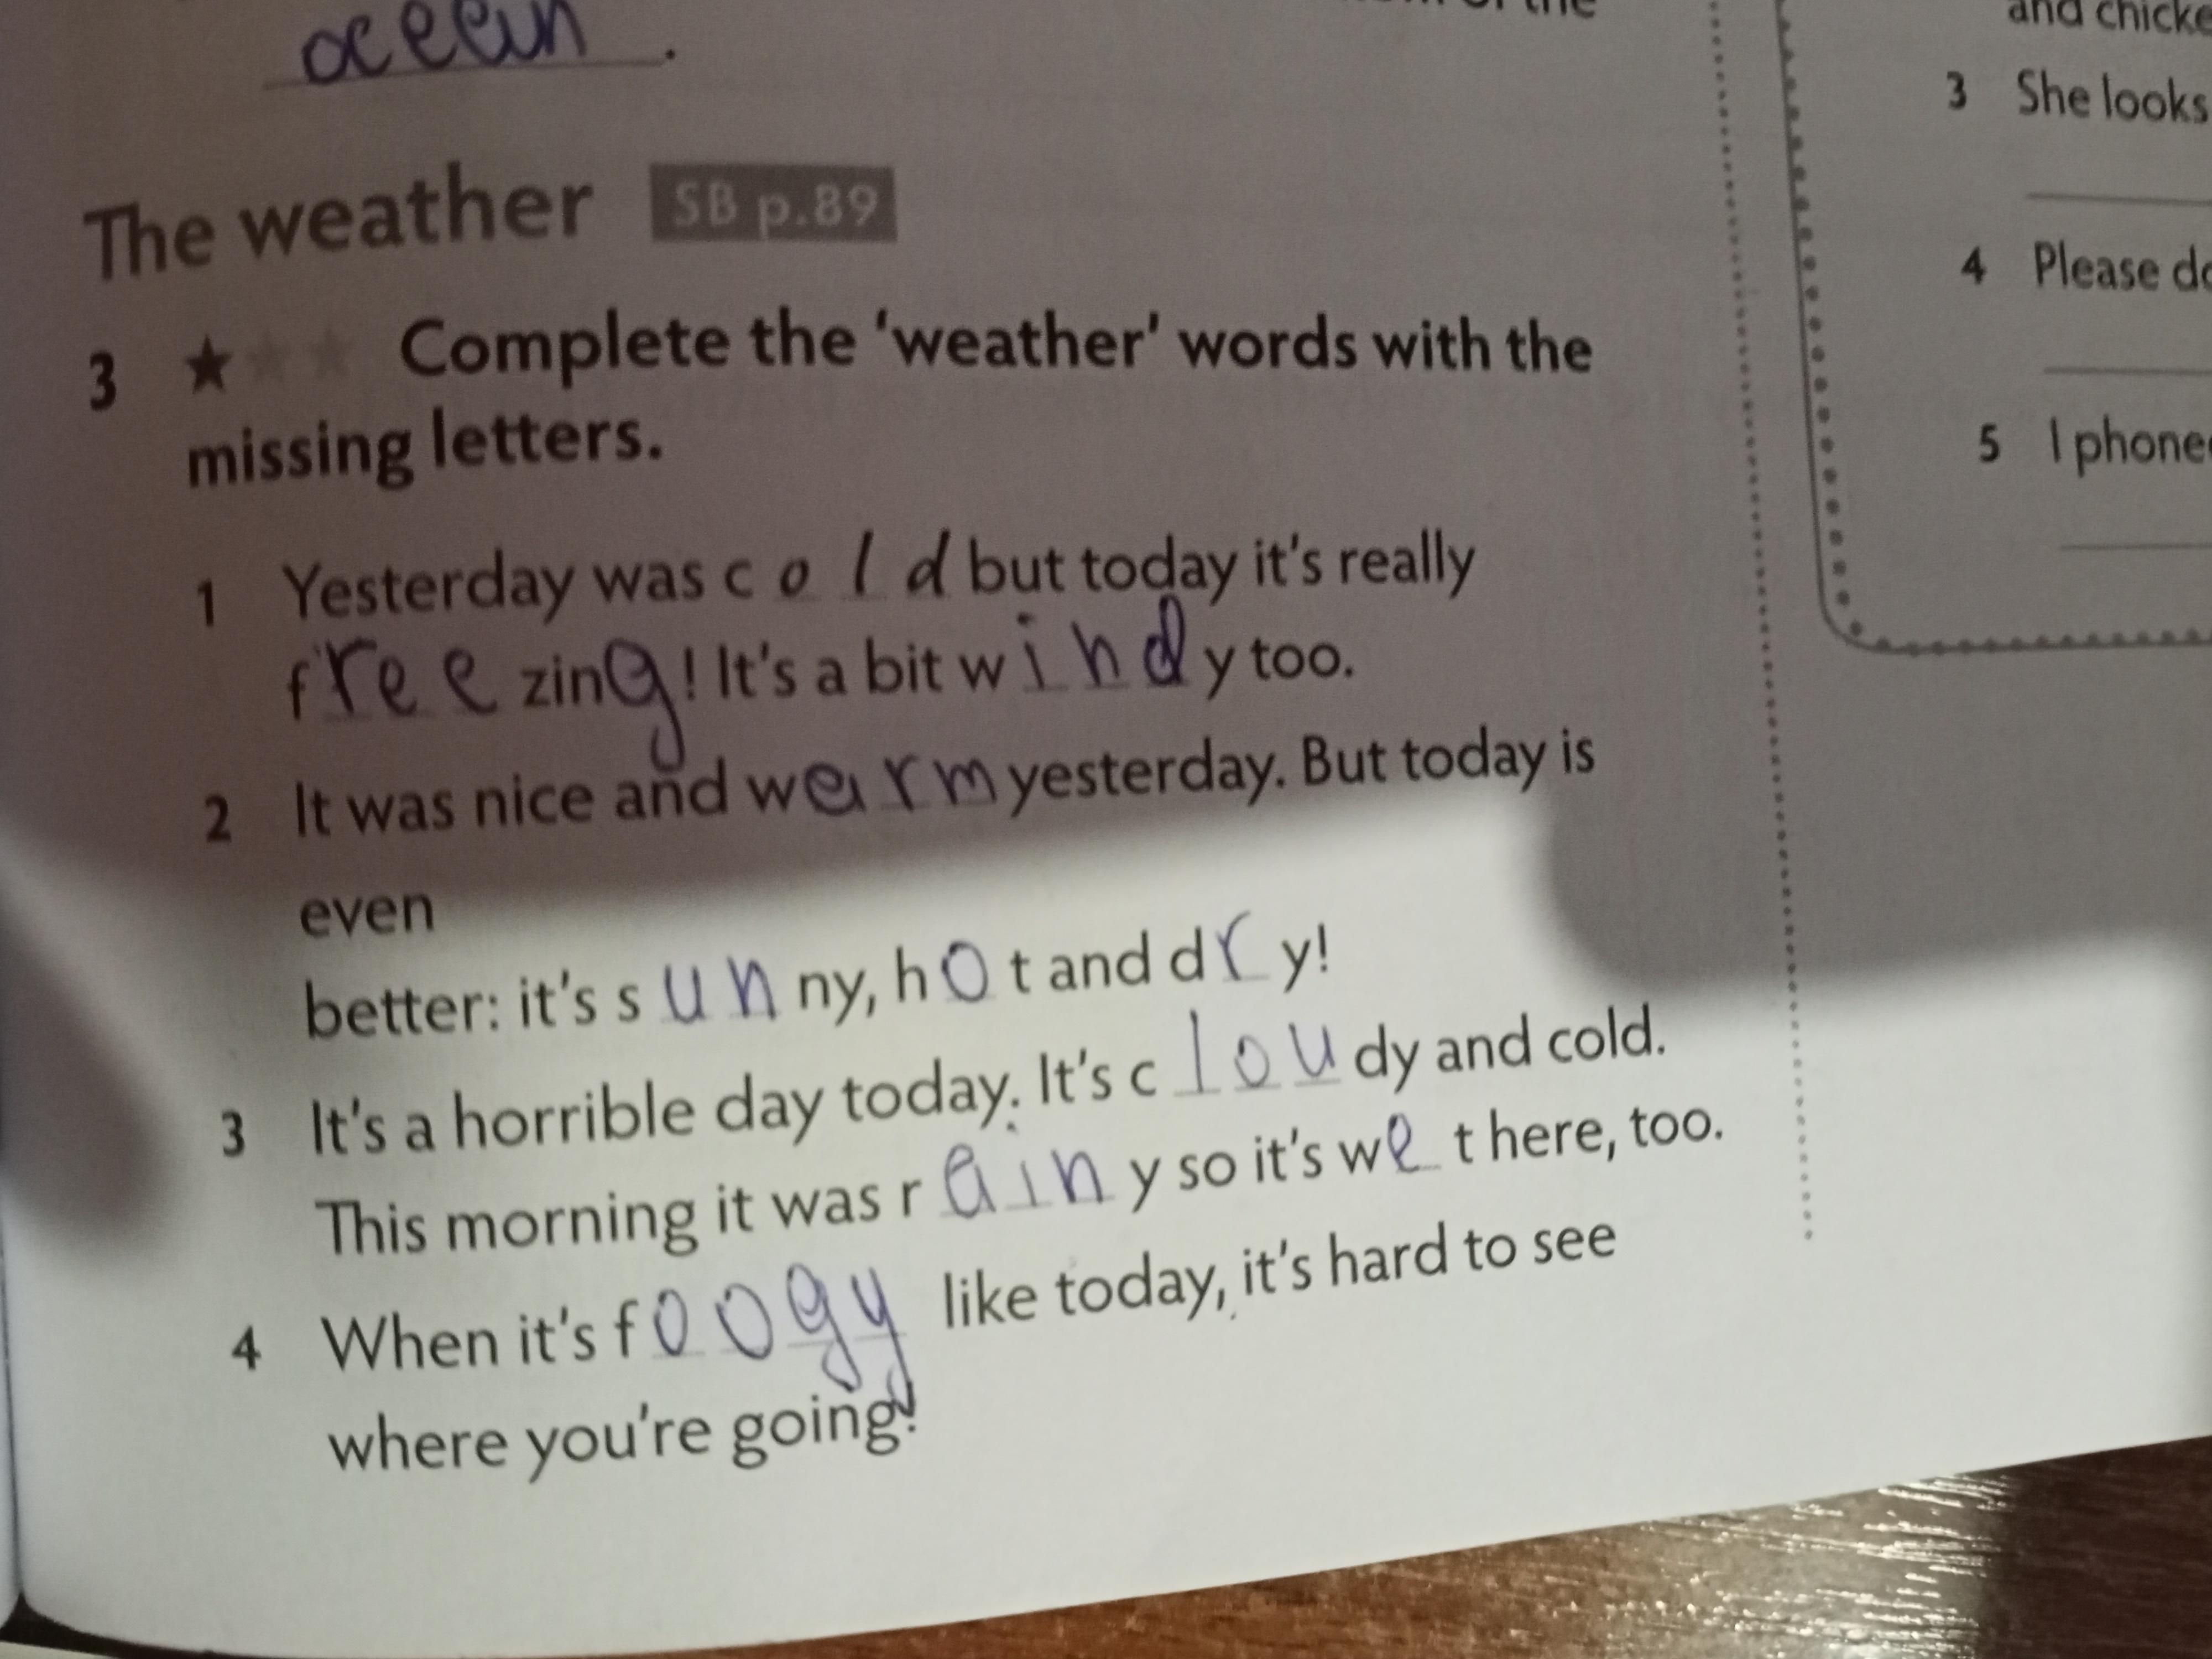 ocean.
the
and chicke
The weather SB p.89
3 Complete the 'weather' words with the
missing letters.
1 Yesterday was cold but today it's really
freezing! It's a bit windy too.
2 It was nice and warm yesterday. But today is
even
better: it's sunny, hot and dry!
3 It's a horrible day today. It's cloudy and cold.
This morning it was rainy so it's wet here, too.
4 When it's foogy like today, it's hard to see
where you're going!
3 She looks
4 Please do
5 I phone